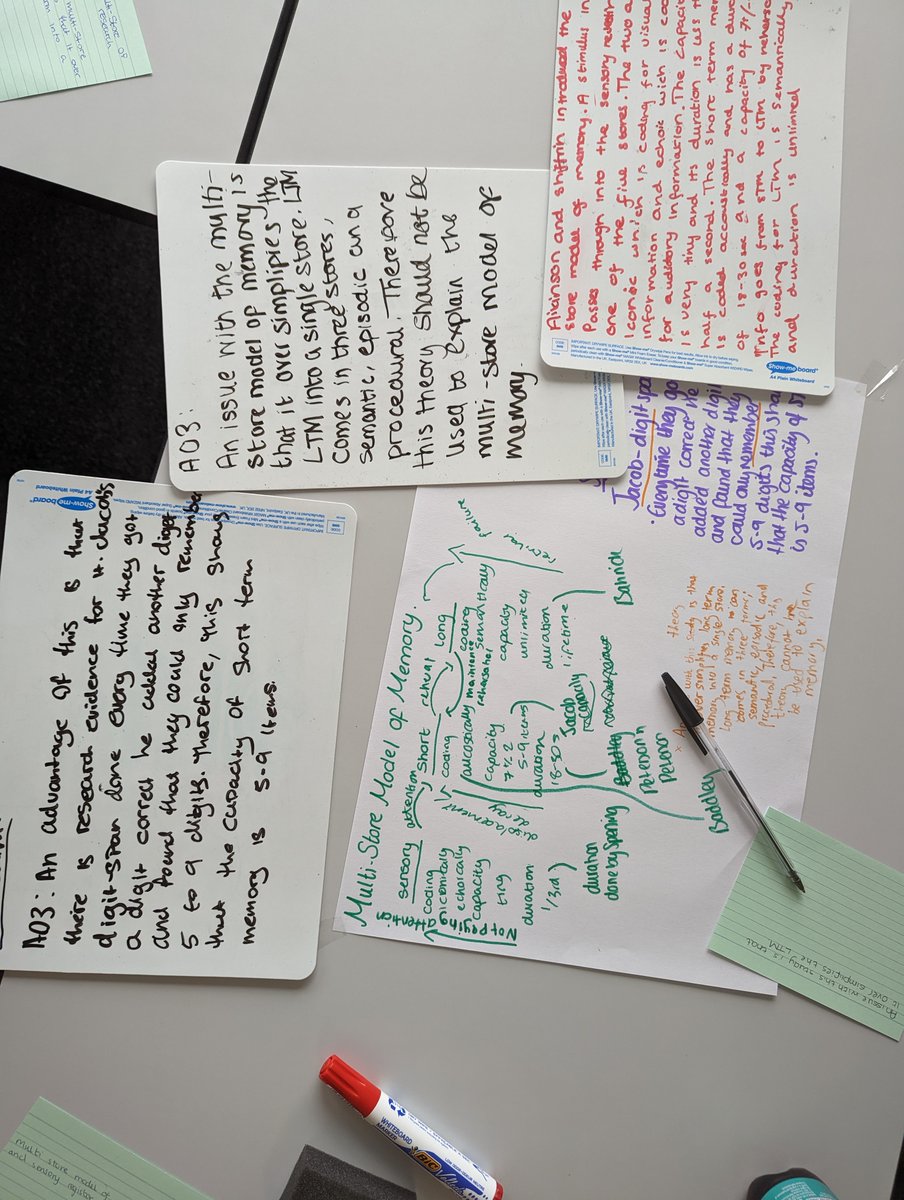 AO3: An advantage of this is that
there is research evidence for it. Jacobs
digit-span done every time they got
a digit correct he added another digit
and found that they could only remember
5 to 9 digits. therefore, this shows
that the capacity of short term
memory is 5-9 items.
Show-me board
A4 Plain Whiteboard
AO3:
An issue with the multi-
store model of memory is
that it over simplifies the
LTM into a single store. LTM
comes in three stores,
semantic, episodic and
procedural. Therefore
this theory should not be
used to explain the
multi-store model of
memory.
Atkinson and shiffrin introduced the
store model of memory. A stimulus in
Passes through into the sensory
one of the five stores. The two a
Iconic which is coding for visual
information and echoic wich is co
for auditory information. The capaci
is very tiny and its duration is less th
half a second. The short term mem
is coded accoustically and has a dura
of 18-30 sec and a capacity of 7+/-
Info goes from STM to LTM by rehersa
The coding for LTM is semanically
and duration is unlimited
Show-me board
A4 Plain Whiteboard
Multi-Store Model of Memory.
sensory attention short rehersal long
coding
iconically
echoically
capacity
tiny
duration
Not paying
attention
coding
capacity
7+-2
5-9 items
duration
displacement
decay
maintenance
rehearsal
coding
semantically
capacity
unlimited
duration
lifetime
retrieval
duration
Jacob
capacity
Peterson
Baddley
Bahrick
Jacob-digit spa
· Everytime they go
a digit correct he
added another digi
and found that they
could only remember
5-9 digits this sho
that the capacity of ST
is 5-9 items.
theory
with this study is that
over simplifies long term
memory into a single store.
Long term
comes in three forms;
semantic, episodic and
procedural, therefore, this
theory cannot
be used to explain
memory.
An issue with this study is that
it over simplifies the LTM
multi store model of
and sensory register
multi-store
research
that it over
BIC
WHITEBOARD
MARKER